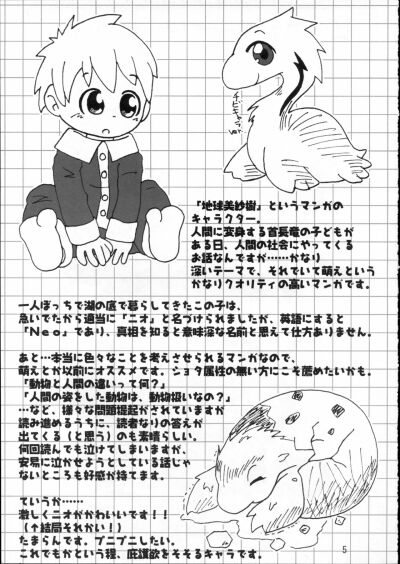 チビキャラver.
「地球美紗樹」というマンガの
キャラクター。
人間に変身する首長竜の子どもが
ある日、人間の社会にやってくる
お話なんですが……かなり
深いテーマで、それでいて萌えという
かなりクオリティの高いマンガです。
一人ぼっちで湖の底で暮らしてきたこの子は、
急いでたから適当に「ニオ」と名づけられましたが、英語にすると
「Neo」であり、真相を知ると意味深な名前と思えて仕方ありません。
あと…本当に色々なことを考えさせられるマンガなので、
萌えとか以前にオススメです。ショタ属性の無い方にこそ薦めたいかも。
「動物と人間の違いって何?」
「人間の姿をした動物は、動物扱いなの?」
…など、様々な問題提起がされていますが
読み進めるうちに、読者なりの答えが
出てくる(と思う)のも素晴らしい。
何回読んでも泣けてしまいますが、
安易に泣かせようとしている話じゃ
ないところも好感が持てます。
ていうか……
激しくニオがかわいいです!!
(↑結局それかい!)
たまらんです。プニプニしたい。
これでもかという程、庇護欲をそそるキャラです。
5